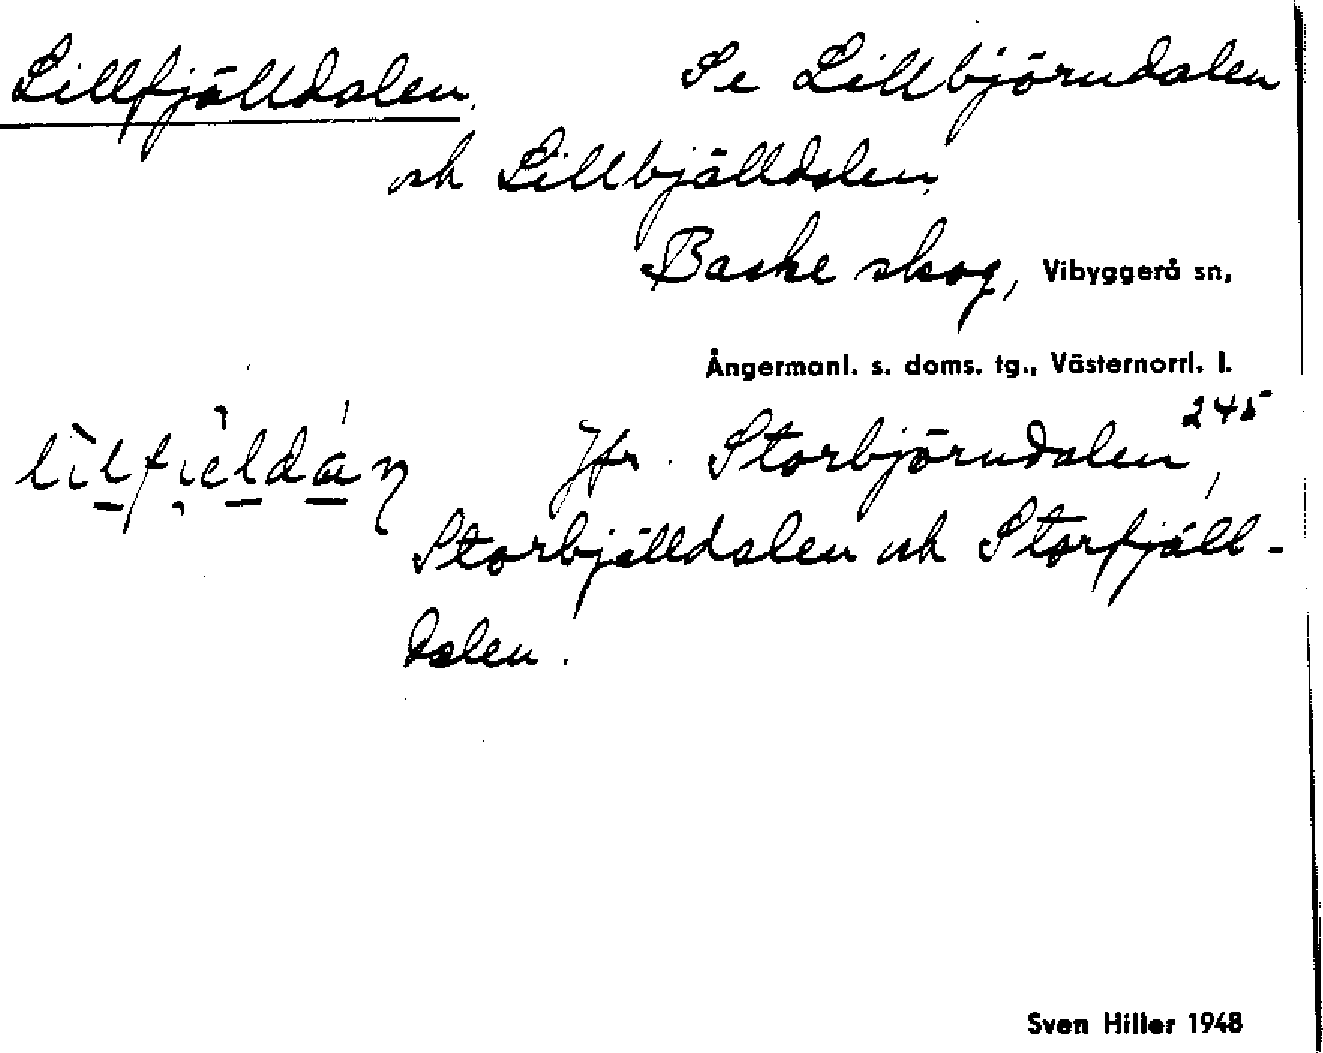 Lillfjälldalen. Se Lillbjörndalen
och Lillbjälldalen.
Baske skog, Vibyggerå sn,
Ångermanl. s. doms. tg., Västernorrl. l.
245
Jfr. Storbjörndalen,
Storbjälldalen och Storfjäll-
dalen.
Sven Hiller 1948